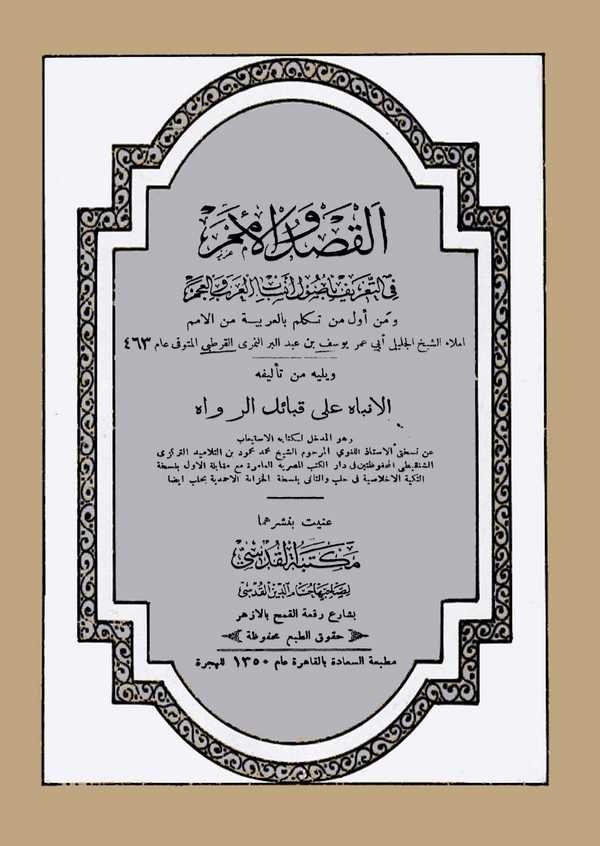 القصد والأمم
في التعريف بأصول أنساب العرب والعجم
ومن أول من تكلم بالعربية من الامم
املاء الشيخ الجليل أبي عمر يوسف بن عبد البر النمرى القرطبي المتوفى عام ٤٦٣
ويليه من تأليفه
الانباه على قبائل الرواه
وهو المدخل لكتابه الاستيعاب
عن نسختي الاستاذ اللغوي المرحوم الشيخ محمد محمود بن التلاميد التركزى
الشنقيطي المحفوظتين في دار الكتب المصرية العامرة مع مقابلة الاول بنسخة
التكية الاخلاصية في حلب والثانى بنسخة الخزانة الاحمدية بحلب ايضا
عنيت بنشرهما
مكتبة القدسي
لصاحبها حسام الدين القدسي
بشارع رقعة القمح بالازهر
حقوق الطبع محفوظة
مطبعة السعادة بالقاهرة عام ١٣٥٠ للهجرة